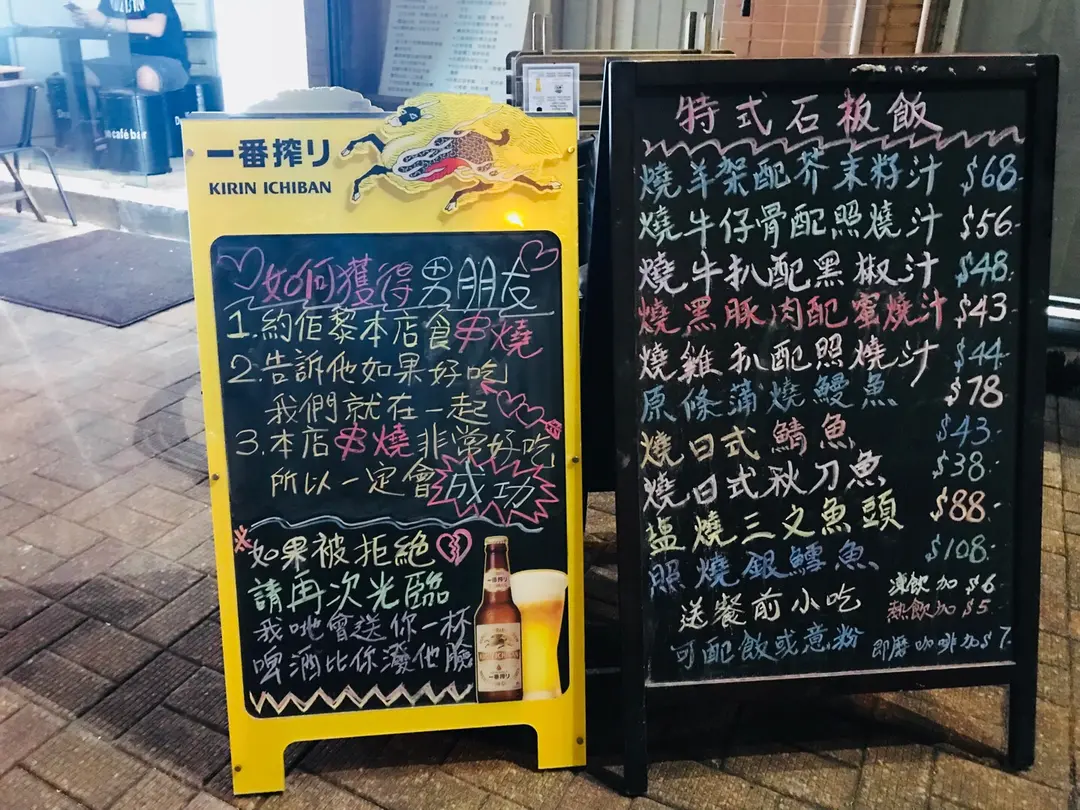 一番搾り
KIRIN ICHIBAN
如何獲得男朋友
1.約佢黎本店食串燒
2.告訴他如果好吃
我們就在一起
3.本店串燒非常好吃
所以一定會成功
如果被拒絕
請再次光臨
我哋會送你一杯
啤酒比你潑他臉
一番搾り
特式石板飯
燒羊架配芥末籽汁 $68
燒牛仔骨配照燒汁 $56
燒牛扒配黑椒汁 $48
燒黑豚肉配蜜燒汁 $43
燒雞扒配照燒汁 $44
原條蒲燒鰻魚 $78
燒日式鯖魚 $43
燒日式秋刀魚 $38
盐燒三文魚頭 $88
照燒銀鱈魚 $108
送餐前小吃
可配飯或意粉
凍飲加$6
熱飲加$5
即磨咖啡加$7
café bar